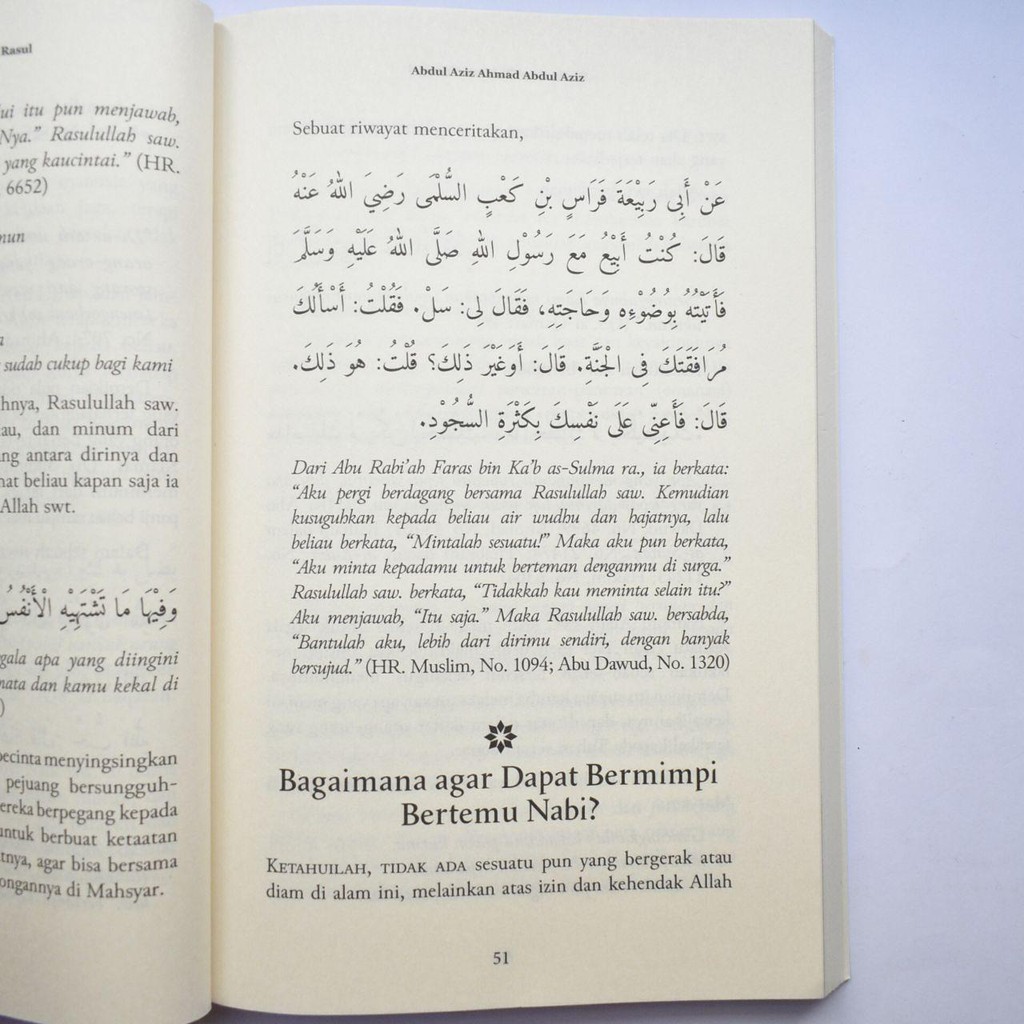 Rasul
ui itu pun menjawab,
Nya.” Rasulullah saw.
yang kaucintai.” (HR.
6652)
sudah cukup bagi kami
hnya, Rasulullah saw.
au, dan minum dari
ng antara dirinya dan
hat beliau kapan saja ia
Allah swt.
وَفِيْهَا مَا تَشْتَهِيْهِ الْأَنْفُسُ
gala apa yang diingini
mata dan kamu kekal di
)
pecinta menyingsingkan
pejuang bersungguh-
ereka berpegang kepada
untuk berbuat ketaatan
tnya, agar bisa bersama
ongannya di Mahsyar.
Abdul Aziz Ahmad Abdul Aziz
Sebuat riwayat menceritakan,
عَنْ أَبِى رَبِيْعَةَ فَرَاسٍ بْنِ كَعْبٍ السُّلْمَى رَضِيَ اللهُ عَنْهُ
قَالَ: كُنْتُ أَبِيْعُ مَعَ رَسُوْلِ اللهِ صَلَّى اللهُ عَلَيْهِ وَسَلَّمَ
فَأَتَيْتُهُ بِوُضُوْءِهِ وَحَاجَتِهِ، فَقَالَ لِى: سَلْ. فَقُلْتُ: أَسْأَلُكَ
مُرَافَقَتَكَ فِى الْجَنَّةِ. قَالَ: أَوَغَيْرَ ذَلِكَ؟ قُلْتُ: هُوَ ذَلِكَ.
قَالَ: فَأَعِنِّى عَلَى نَفْسِكَ بِكَثْرَةِ السُّجُوْدِ.
Dari Abu Rabi’ah Faras bin Ka’b as-Sulma ra., ia berkata:
“Aku pergi berdagang bersama Rasulullah saw. Kemudian
kusuguhkan kepada beliau air wudhu dan hajatnya, lalu
beliau berkata, “Mintalah sesuatu!” Maka aku pun berkata,
“Aku minta kepadamu untuk berteman denganmu di surga.”
Rasulullah saw. berkata, “Tidakkah kau meminta selain itu?”
Aku menjawab, “Itu saja.” Maka Rasulullah saw. bersabda,
“Bantulah aku, lebih dari dirimu sendiri, dengan banyak
bersujud.” (HR. Muslim, No. 1094; Abu Dawud, No. 1320)
Bagaimana agar Dapat Bermimpi
Bertemu Nabi?
KETAHUILAH, TIDAK ADA sesuatu pun yang bergerak atau
diam di alam ini, melainkan atas izin dan kehendak Allah
51